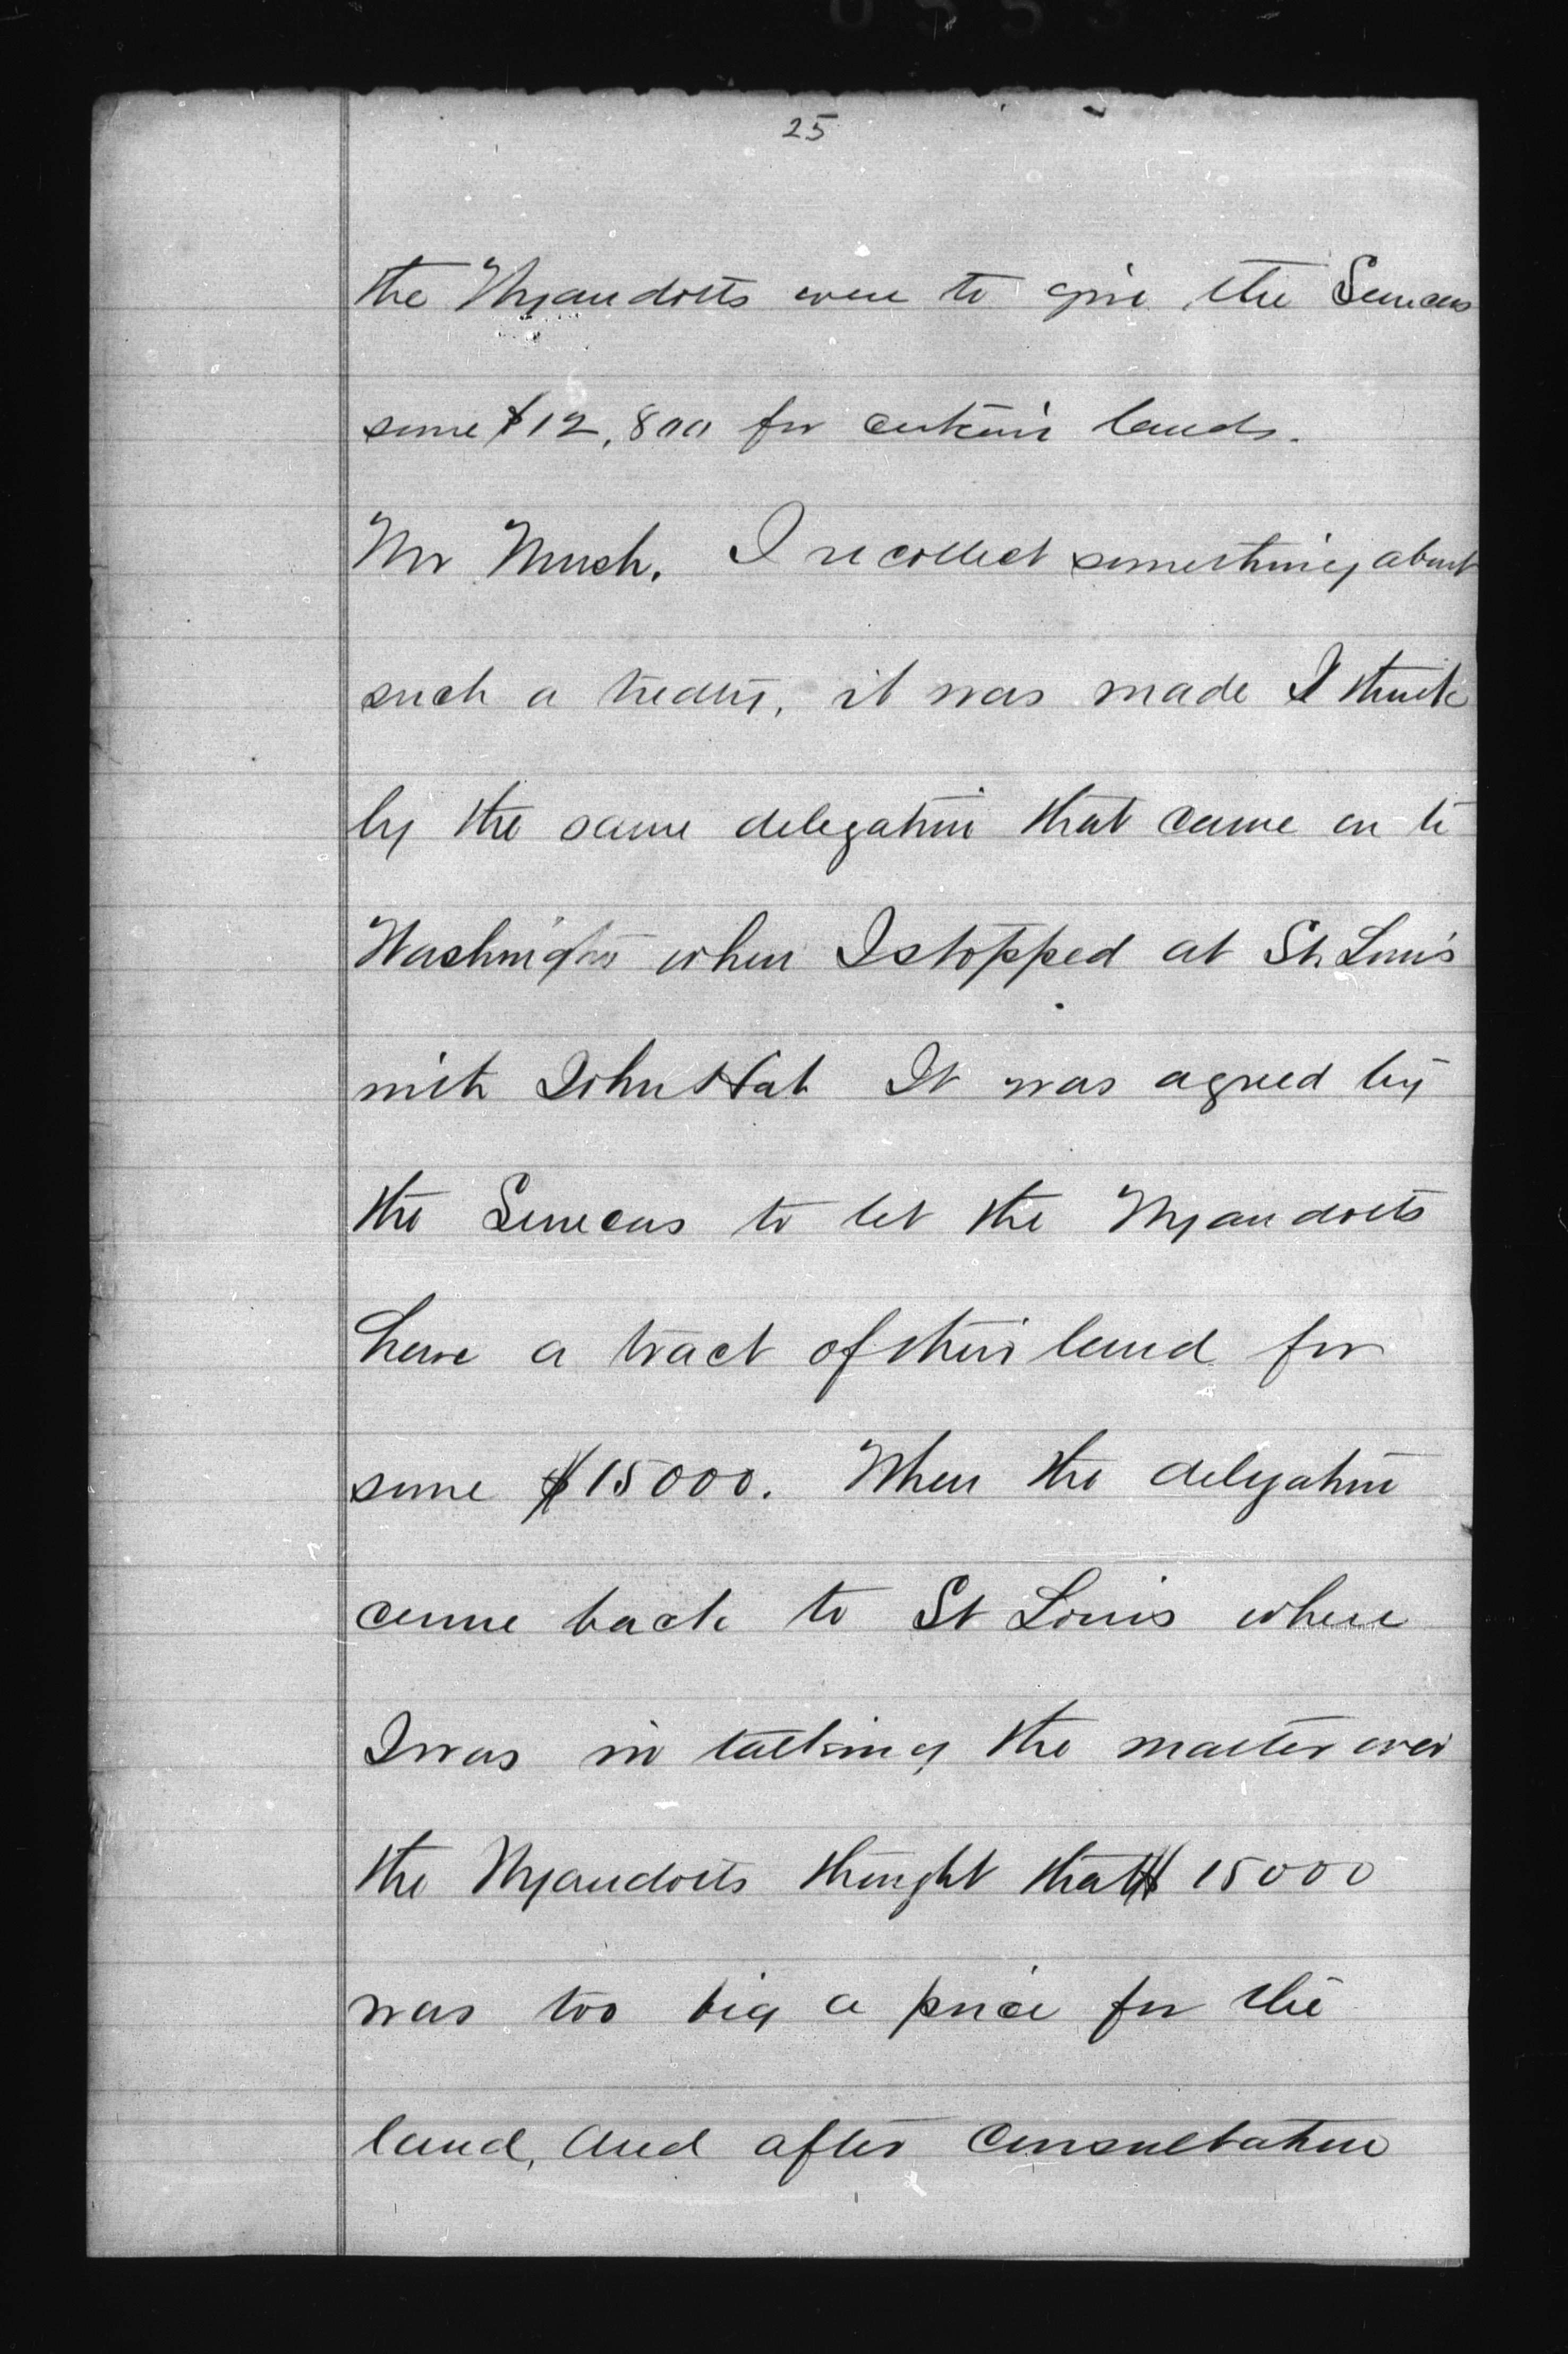 25
the Wyandotts were to give the Senecas
some $12,800 for certain lands.
Mr Mush. I recollect something about
such a treaty, it was made I think
by the same delegation that came on to
Washington when I stopped at St. Louis
with John Hat It was agreed by
the Senecas to let the Wyandotts
have a tract of their land for
some $15000. When the delegation
came back to St Louis where
I was in talking the matter over
the Wyandotts thought that $15000
was too big a price for the
land, and after consultation